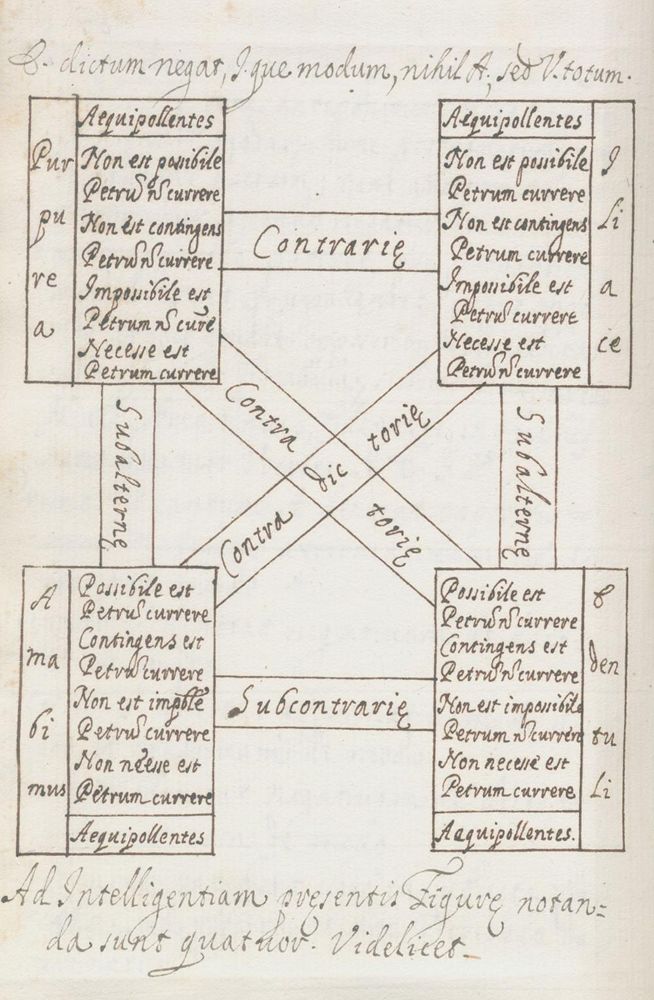 E. dictum negat, I. que modum, nihil A; sed V. totum.
Aequipollentes
Pur
pu
re
a
Non est possibile
Petrũ nõ currere
Non est contingens
Petrũ nõ currere
Impossibile est
Petrum nõ curẽ
Necesse est
Petrum currere
Contrarię
Aequipollentes
Non est possibile
Petrum currere
Non est contingens
Petrum currere
Impossibile est
Petrũ currere
Necesse est
Petrũ nõ currere
I
li
a
ce
Subalternę
Contra
dic
torię
Contra
torię
Subalternę
A
ma
bi
mus
Possibile est
Petrũ currere
Contingens est
Petrũ currere
Non est impõle
Petrũ currere
Non nẽesse est
Petrum currere
Aequipollentes
Subcontrarię
Possibile est
Petrũ nõ currere
Contingens est
Petrũ nõ currere
Non est impossibile
Petrum nõ currere
Non necesse est
Petrum currere
Aaquipollentes.
E
den
tu
li
Ad Intelligentiam pręsentis Figurę notan=
da sunt quatuor. Videlicet